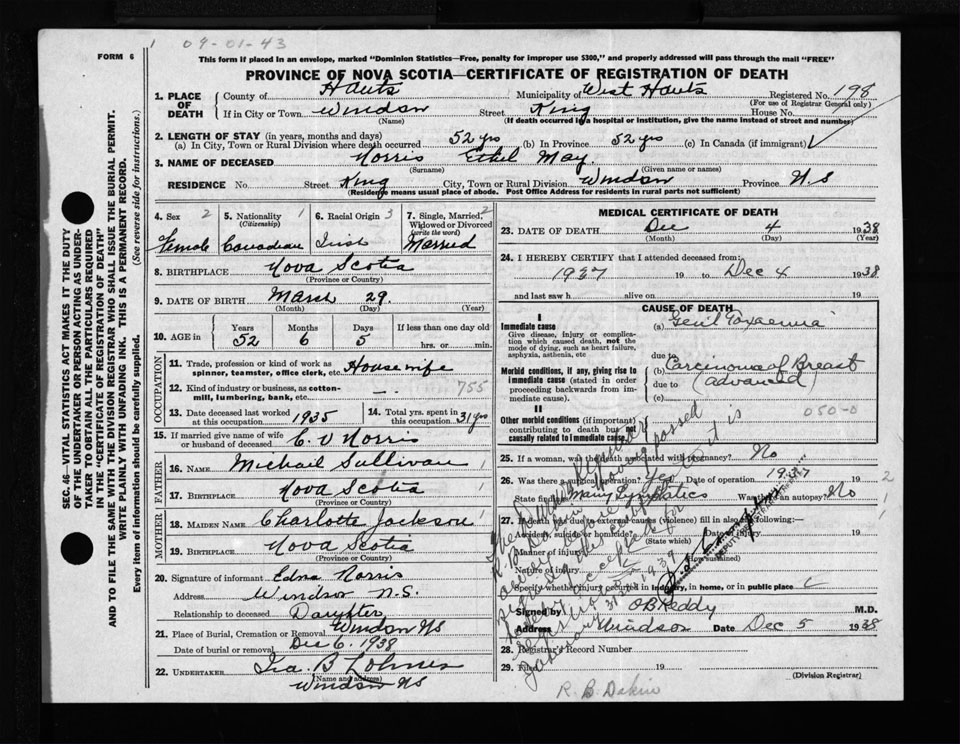 09-01-43
FORM 6
This form if placed in an envelope, marked "Dominion Statistics—Free, penalty for improper use $300," and properly addressed will pass through the mail "FREE"
PROVINCE OF NOVA SCOTIA—CERTIFICATE OF REGISTRATION OF DEATH
1. PLACE OF DEATH
County of Hants Municipality of West Hants Registered No. 198
(For use of Registrar General only)
If in City or Town Windsor Street King House No.
(Name) (If death occurred in a hospital or institution, give the name instead of street and number)
2. LENGTH OF STAY (in years, months and days)
(a) In City, Town or Rural Division where death occurred 52 yrs (b) In Province 52 yrs (c) In Canada (if immigrant)
3. NAME OF DECEASED Norris Ethel May.
(Surname) (Given name or names)
RESIDENCE No. Street King City, Town or Rural Division Windsor Province N.S
(Residence means usual place of abode. Post Office Address for residents in rural parts not sufficient)
SEC. 46—VITAL STATISTICS ACT MAKES IT THE DUTY
OF THE UNDERTAKER OR PERSON ACTING AS UNDER-
TAKER TO OBTAIN ALL THE PARTICULARS REQUIRED
IN THE "CERTIFICATE OF REGISTRATION OF DEATH"
AND TO FILE THE SAME WITH THE DIVISION REGISTRAR WHO SHALL ISSUE THE BURIAL PERMIT.
WRITE PLAINLY WITH UNFADING INK. THIS IS A PERMANENT RECORD.
Every item of information should be carefully supplied. (See reverse side for instructions.)
4. Sex 2
Female
5. Nationality 1
(Citizenship)
Canadian
6. Racial Origin 3
Irish
7. Single, Married, 2
Widowed or Divorced
(write the word)
Married
8. BIRTHPLACE Nova Scotia
(Province or Country)
9. DATE OF BIRTH March 29.
(Month) (Day) (Year)
10. AGE in
Years Months Days If less than one day old
52 6 5 hrs. or min.
OCCUPATION
11. Trade, profession or kind of work as
spinner, teamster, office clerk, etc. Housewife
12. Kind of industry or business, as cotton-
mill, lumbering, bank, etc. — 755
13. Date deceased last worked
at this occupation 1935
14. Total yrs. spent in
this occupation 31 yrs
15. If married give name of wife
or husband of deceased C. V Norris
FATHER
16. NAME Michael Sullivan
17. BIRTHPLACE Nova Scotia
(Province or Country)
MOTHER
18. MAIDEN NAME Charlotte Jackson
19. BIRTHPLACE Nova Scotia
(Province or Country)
20. Signature of informant Edna Norris
Address Windsor N.S.
Relationship to deceased Daughter
21. Place of Burial, Cremation or Removal Windsor NS
Date of burial or removal Dec 6. 1938
22. UNDERTAKER Ira B Lohnes
(Name and address)
Windsor NS
MEDICAL CERTIFICATE OF DEATH
23. DATE OF DEATH Dec 4 1938
(Month) (Day) (Year)
24. I HEREBY CERTIFY that I attended deceased from:
1937 19 to Dec 4 1938
and last saw h alive on 19
CAUSE OF DEATH
I
Immediate cause
Give disease, injury or complica-
tion which caused death, not the
mode of dying, such as heart failure,
asphyxia, asthenia, etc
(a) Genl Toxaemia
due to
Morbid conditions, if any, giving rise to
immediate cause (stated in order
proceeding backwards from im-
mediate cause).
(b) Carcinoma of Breast
due to (advanced)
(c)
II
Other morbid conditions (if important)
contributing to death but not
causally related to immediate cause.
050-0
25. If a woman, was the death associated with pregnancy? No
26. Was there a surgical operation? Yes Date of operation 1937
State findings Many lymphatics Was there an autopsy? No
27. If death was due to external causes (violence) fill in also the following:
Accident, suicide or homicide?
(State which)
Manner of injury
(How sustained)
Nature of injury
Specify whether injury occurred in industry, in home, or in public place
Signed by O B Keddy M.D.
Address Windsor Date Dec 5 1938
28. Registrar's Record Number
29. Filed 19
(Division Registrar)
R. B. Dakin